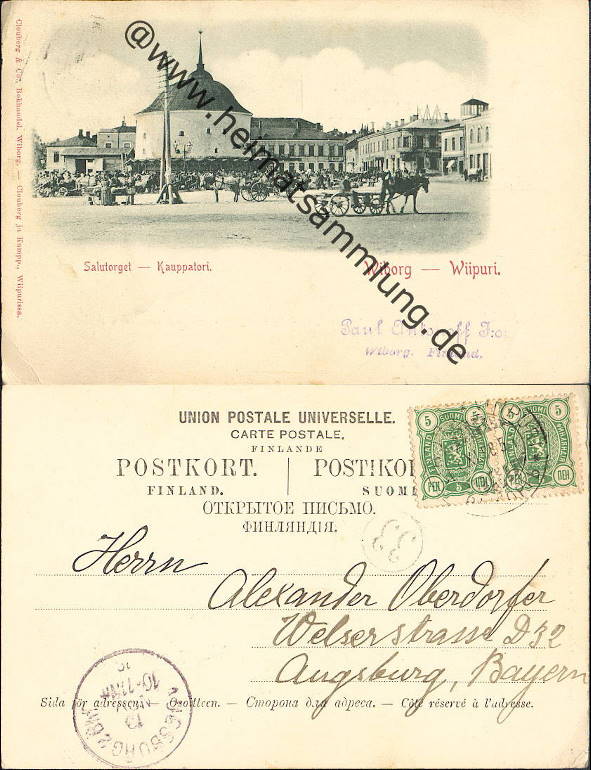 @www.heimatsammlung.de
Clouberg & C:o, Bokhandel, Wiborg. — Clouberg ja Kumpp., Wiipurissa.
Salutorget — Kauppatori.
Wiborg — Wiipuri.
Paul
Wiborg. Finland.
UNION POSTALE UNIVERSELLE.
CARTE POSTALE.
FINLANDE
POSTKORT. POSTIKO
FINLAND. SUOMI
ОТКРЫТОЕ ПИСЬМО.
ФИНЛЯНДІЯ.
5 5 5 5
PEN PEN
33
Herrn
Alexander Oberdorfer
Welserstrasse D32
Augsburg, Bayern
Sida för adressen. — Osoitteen. — Сторона для адреса. — Côté réservé à l'adresse.
AUGSBURG
13